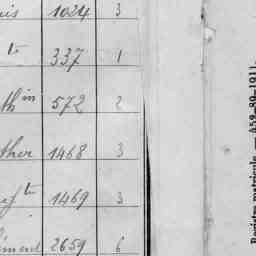 is 1024 3
te 337 1
th in 572 2
ther 1468 3
te 1469 3
2659 6
Registre matricule. — 459-89-1911.